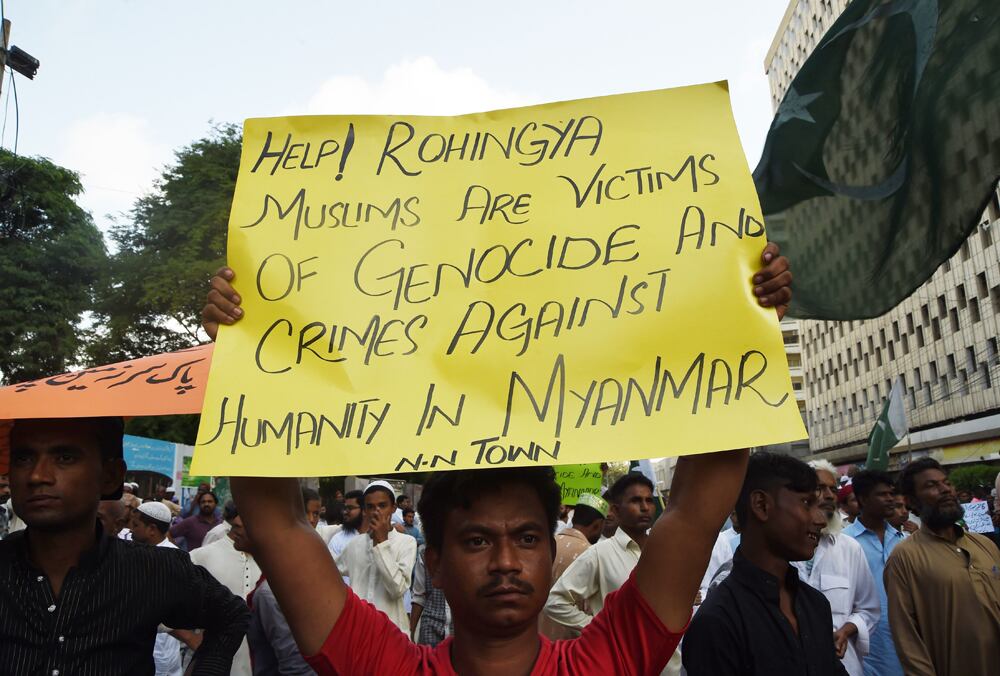 HELP! ROHINGYA
MUSLIMS ARE VICTIMS
OF GENOCIDE AND
CRIMES AGAINST
HUMANITY IN MYANMAR
N.N TOWN